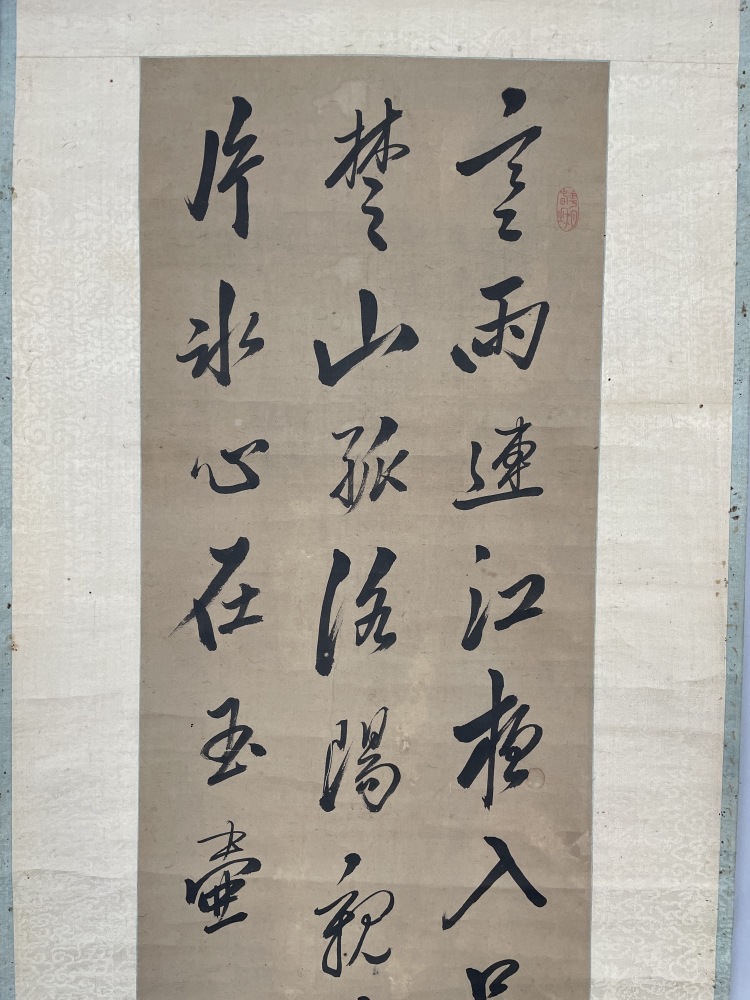 寒雨連江夜入
楚山孤洛陽親
片氷心在玉壺